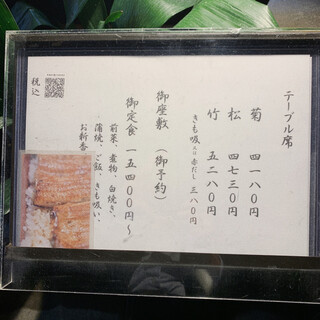 テーブル席
菊 四一八〇円
松 四七三〇円
竹 五二八〇円
きも吸 又は 赤だし 三八〇円
御座敷 (御予約)
御定食 一五四〇〇円〜
前菜、煮物、白焼き、
蒲焼、ご飯、きも吸い、
お新香
税込